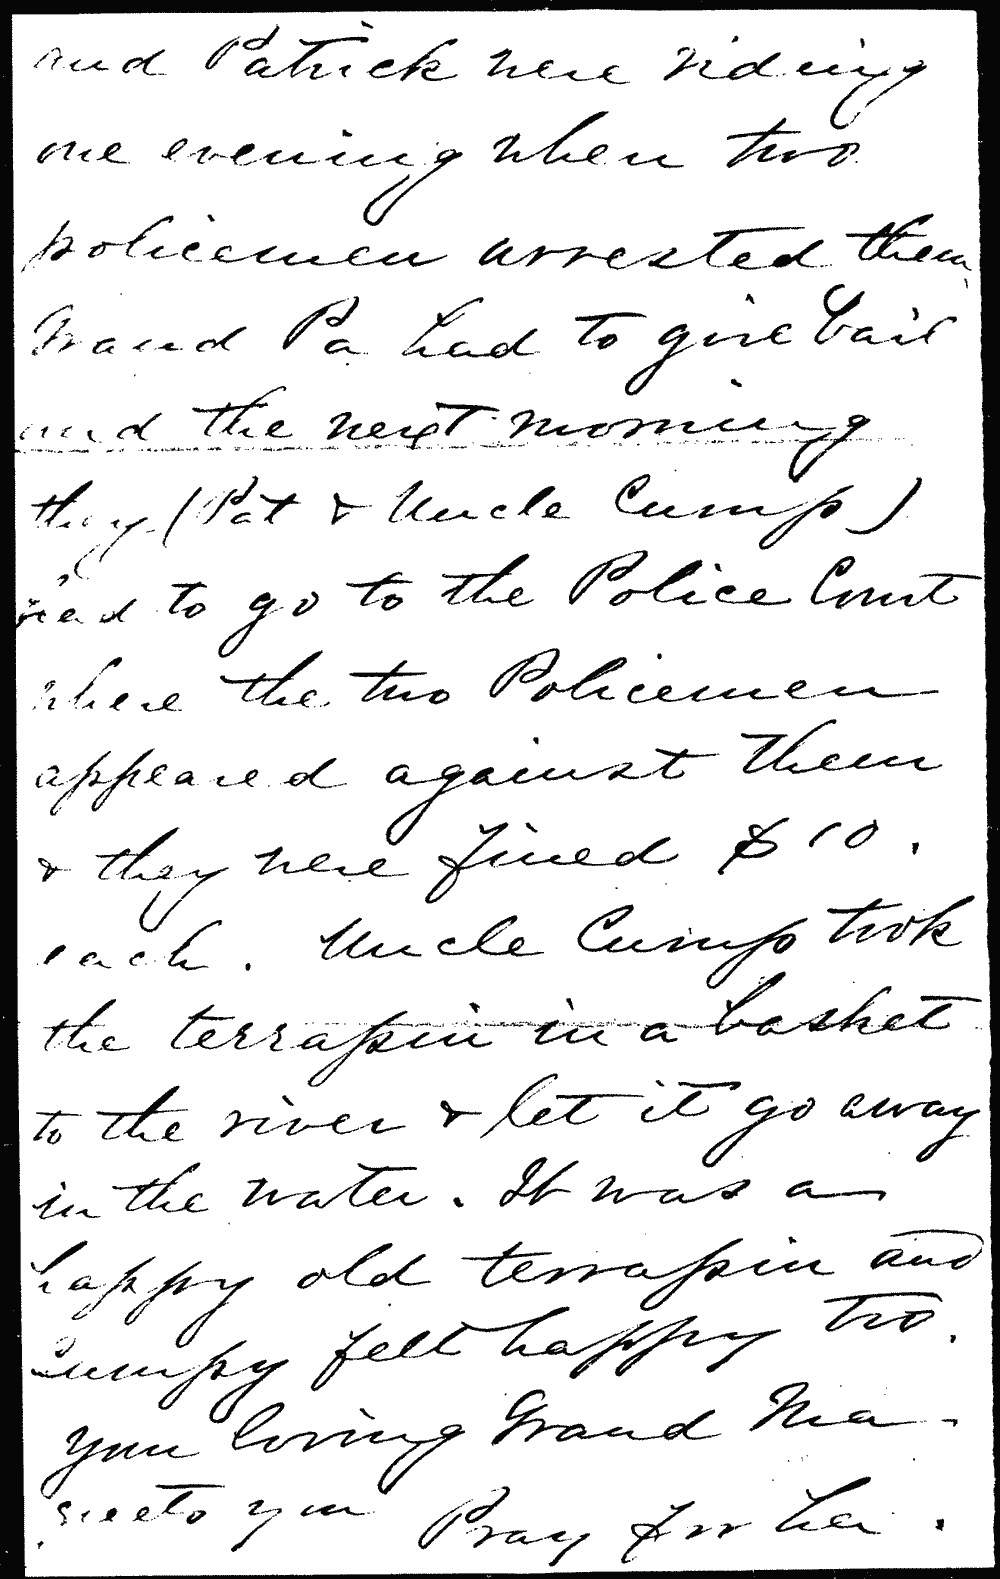 and Patrick were riding
one evening when two
policemen arrested them,
Grand Pa had to give bail
and the next morning
they (Pat & Uncle Cump)
had to go to the Police Court
where the two Policemen
appeared against them
& they were fined $10.
each. Uncle Cump took
the terrapin in a basket
to the river & let it go away
in the water. It was a
happy old terrapin and
Cumpy felt happy too.
Your loving Grand Ma -
greets you Pray for her.